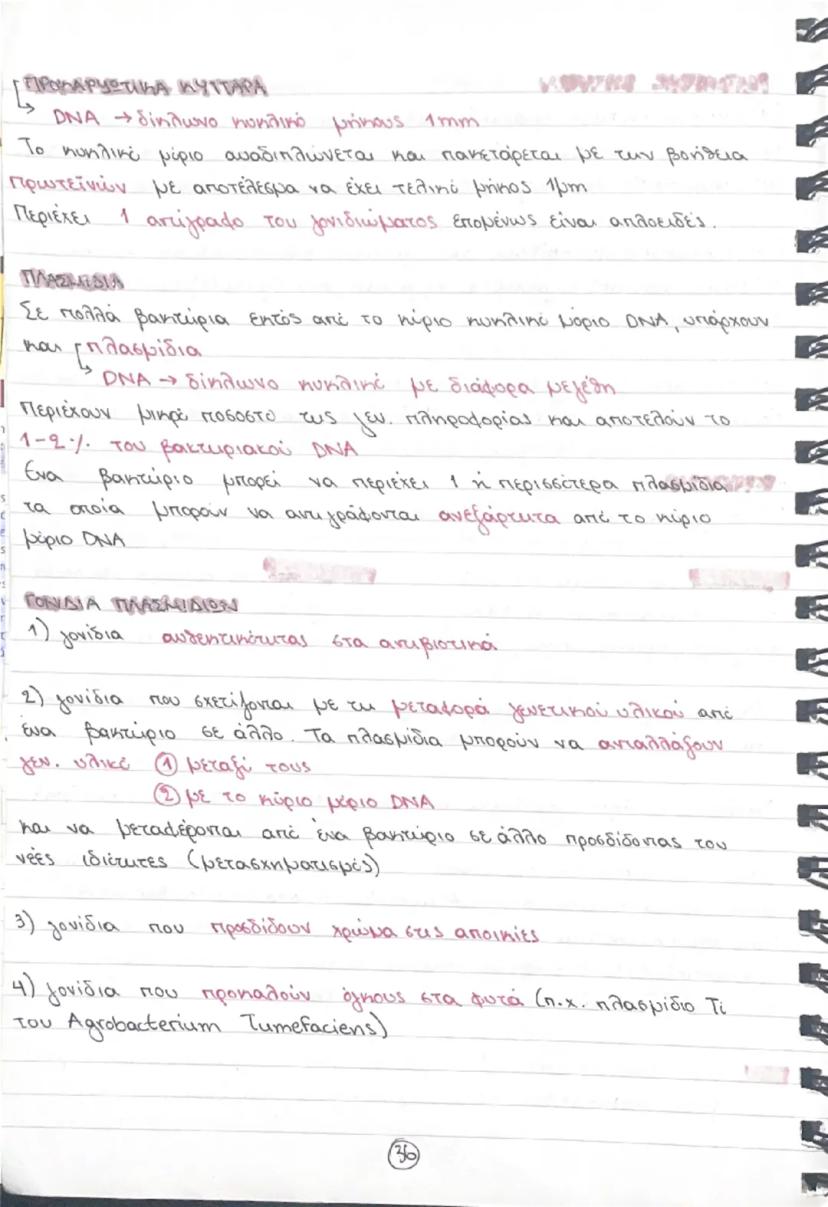 ΠΡΟΚΑΡΥΩΤΙΚΑ ΚΥΤΤΑΡΑ
DNA → δίκλωνο κυκλικό μήκους 1mm
Το κυκλικό μόριο αναδιπλώνεται και πακετάρεται με την βοήθεια
πρωτεϊνών με αποτέλεσμα να έχει τελικό μήκος 1μm
Περιέχει 1 αντίγραφο του γονιδιώματος επομένως είναι απλοειδές.
ΠΛΑΣΜΙΔΙΑ
Σε πολλά βακτήρια εκτός από το κύριο κυκλικό μόριο DNA, υπάρχουν
και πλασμίδια
DNA → δίκλωνο κυκλικό με διάφορα μεγέθη
Περιέχουν μικρό ποσοστό της γεν. πληροφορίας και αποτελούν το
1-2% του βακτηριακού DNA
Ένα βακτήριο μπορεί να περιέχει 1 ή περισσότερα πλασμίδια
τα οποία μπορούν να αντιγράφονται ανεξάρτητα από το κύριο
μόριο DNA
ΓΟΝΙΔΙΑ ΠΛΑΣΜΙΔΙΩΝ
1) γονίδια ανθεκτικότητας στα αντιβιοτικά
2) γονίδια που σχετίζονται με τη μεταφορά γενετικού υλικού από
ένα βακτήριο σε άλλο. Τα πλασμίδια μπορούν να ανταλλάξουν
γεν. υλικό ① μεταξύ τους
② με το κύριο μόριο DNA
και να μεταφέρονται από ένα βακτήριο σε άλλο προσδίδοντας του
νέες ιδιότητες (μετασχηματισμός)
3) γονίδια που προσδίδουν χρώμα στις αποικίες
4) γονίδια που προκαλούν όγκους στα φυτά (π.χ. πλασμίδιο Ti
του Agrobacterium Tumefaciens)
36